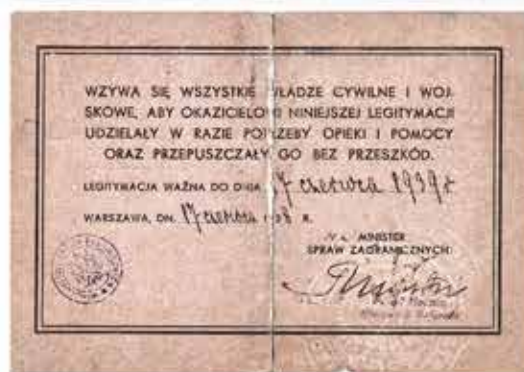 WZYWA SIĘ WSZYSTKIE WŁADZE CYWILNE I WOJ-
SKOWE, ABY OKAZICIELOWI NINIEJSZEJ LEGITYMACJI
UDZIELAŁY W RAZIE POTRZEBY OPIEKI I POMOCY
ORAZ PRZEPUSZCZAŁY GO BEZ PRZESZKÓD.
LEGITYMACJA WAŻNA DO DNIA 17 czerwca 1939 r
WARSZAWA, DN. 17 czerwca 1938 R.
MINISTER
SPRAW ZAGRANICZNYCH: